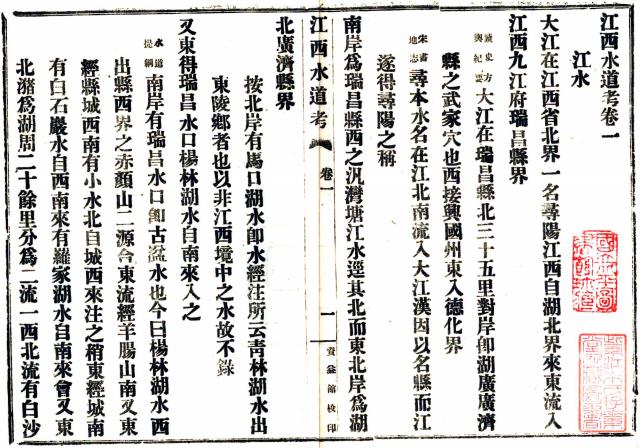 江西水道考卷一
江水
大江在江西省北界一名尋陽江西自湖北界來東流入
江西九江府瑞昌縣界
讀史方輿紀要大江在瑞昌縣北三十五里對岸卽湖廣廣濟
縣之武家穴也西接興國州東入德化界
宋書地志尋本水名在江北南流入大江漢因以名縣而江
遂得尋陽之稱
南岸爲瑞昌縣西之汎灣塘江水逕其北而東北岸爲湖
江西水道考
卷一
一
資益館校印
北廣濟縣界
按北岸有馬口湖水卽水經注所云靑林湖水出
東陵鄕者也以非江西境中之水故不錄
又東得瑞昌水口楊林湖水自南來入之
水道提綱南岸有瑞昌水口卽古盆水也今曰楊林湖水西
出縣西界之赤顏山二源合東流經羊腸山南又東
經縣城西南有小水北自城西來注之稍東經城南
有白石巖水自西南來有羅家湖水自南來會又東
北瀦爲湖周二十餘里分爲二流一西北流有白沙